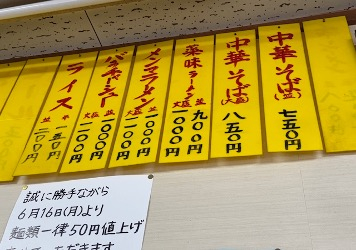 中華そば(並)
七五〇円
中華そば(大盛)
八五〇円
薬味ラーメン
並 九〇〇円
大盛 一〇〇〇円
メンマラーメン
並 一〇〇〇円
大盛 一一〇〇円
バラチャーシュー
並 一〇〇〇円
大盛 一一〇〇円
ライス
誠に勝手ながら
6月16日(月)より
麺類一律50円値上げ